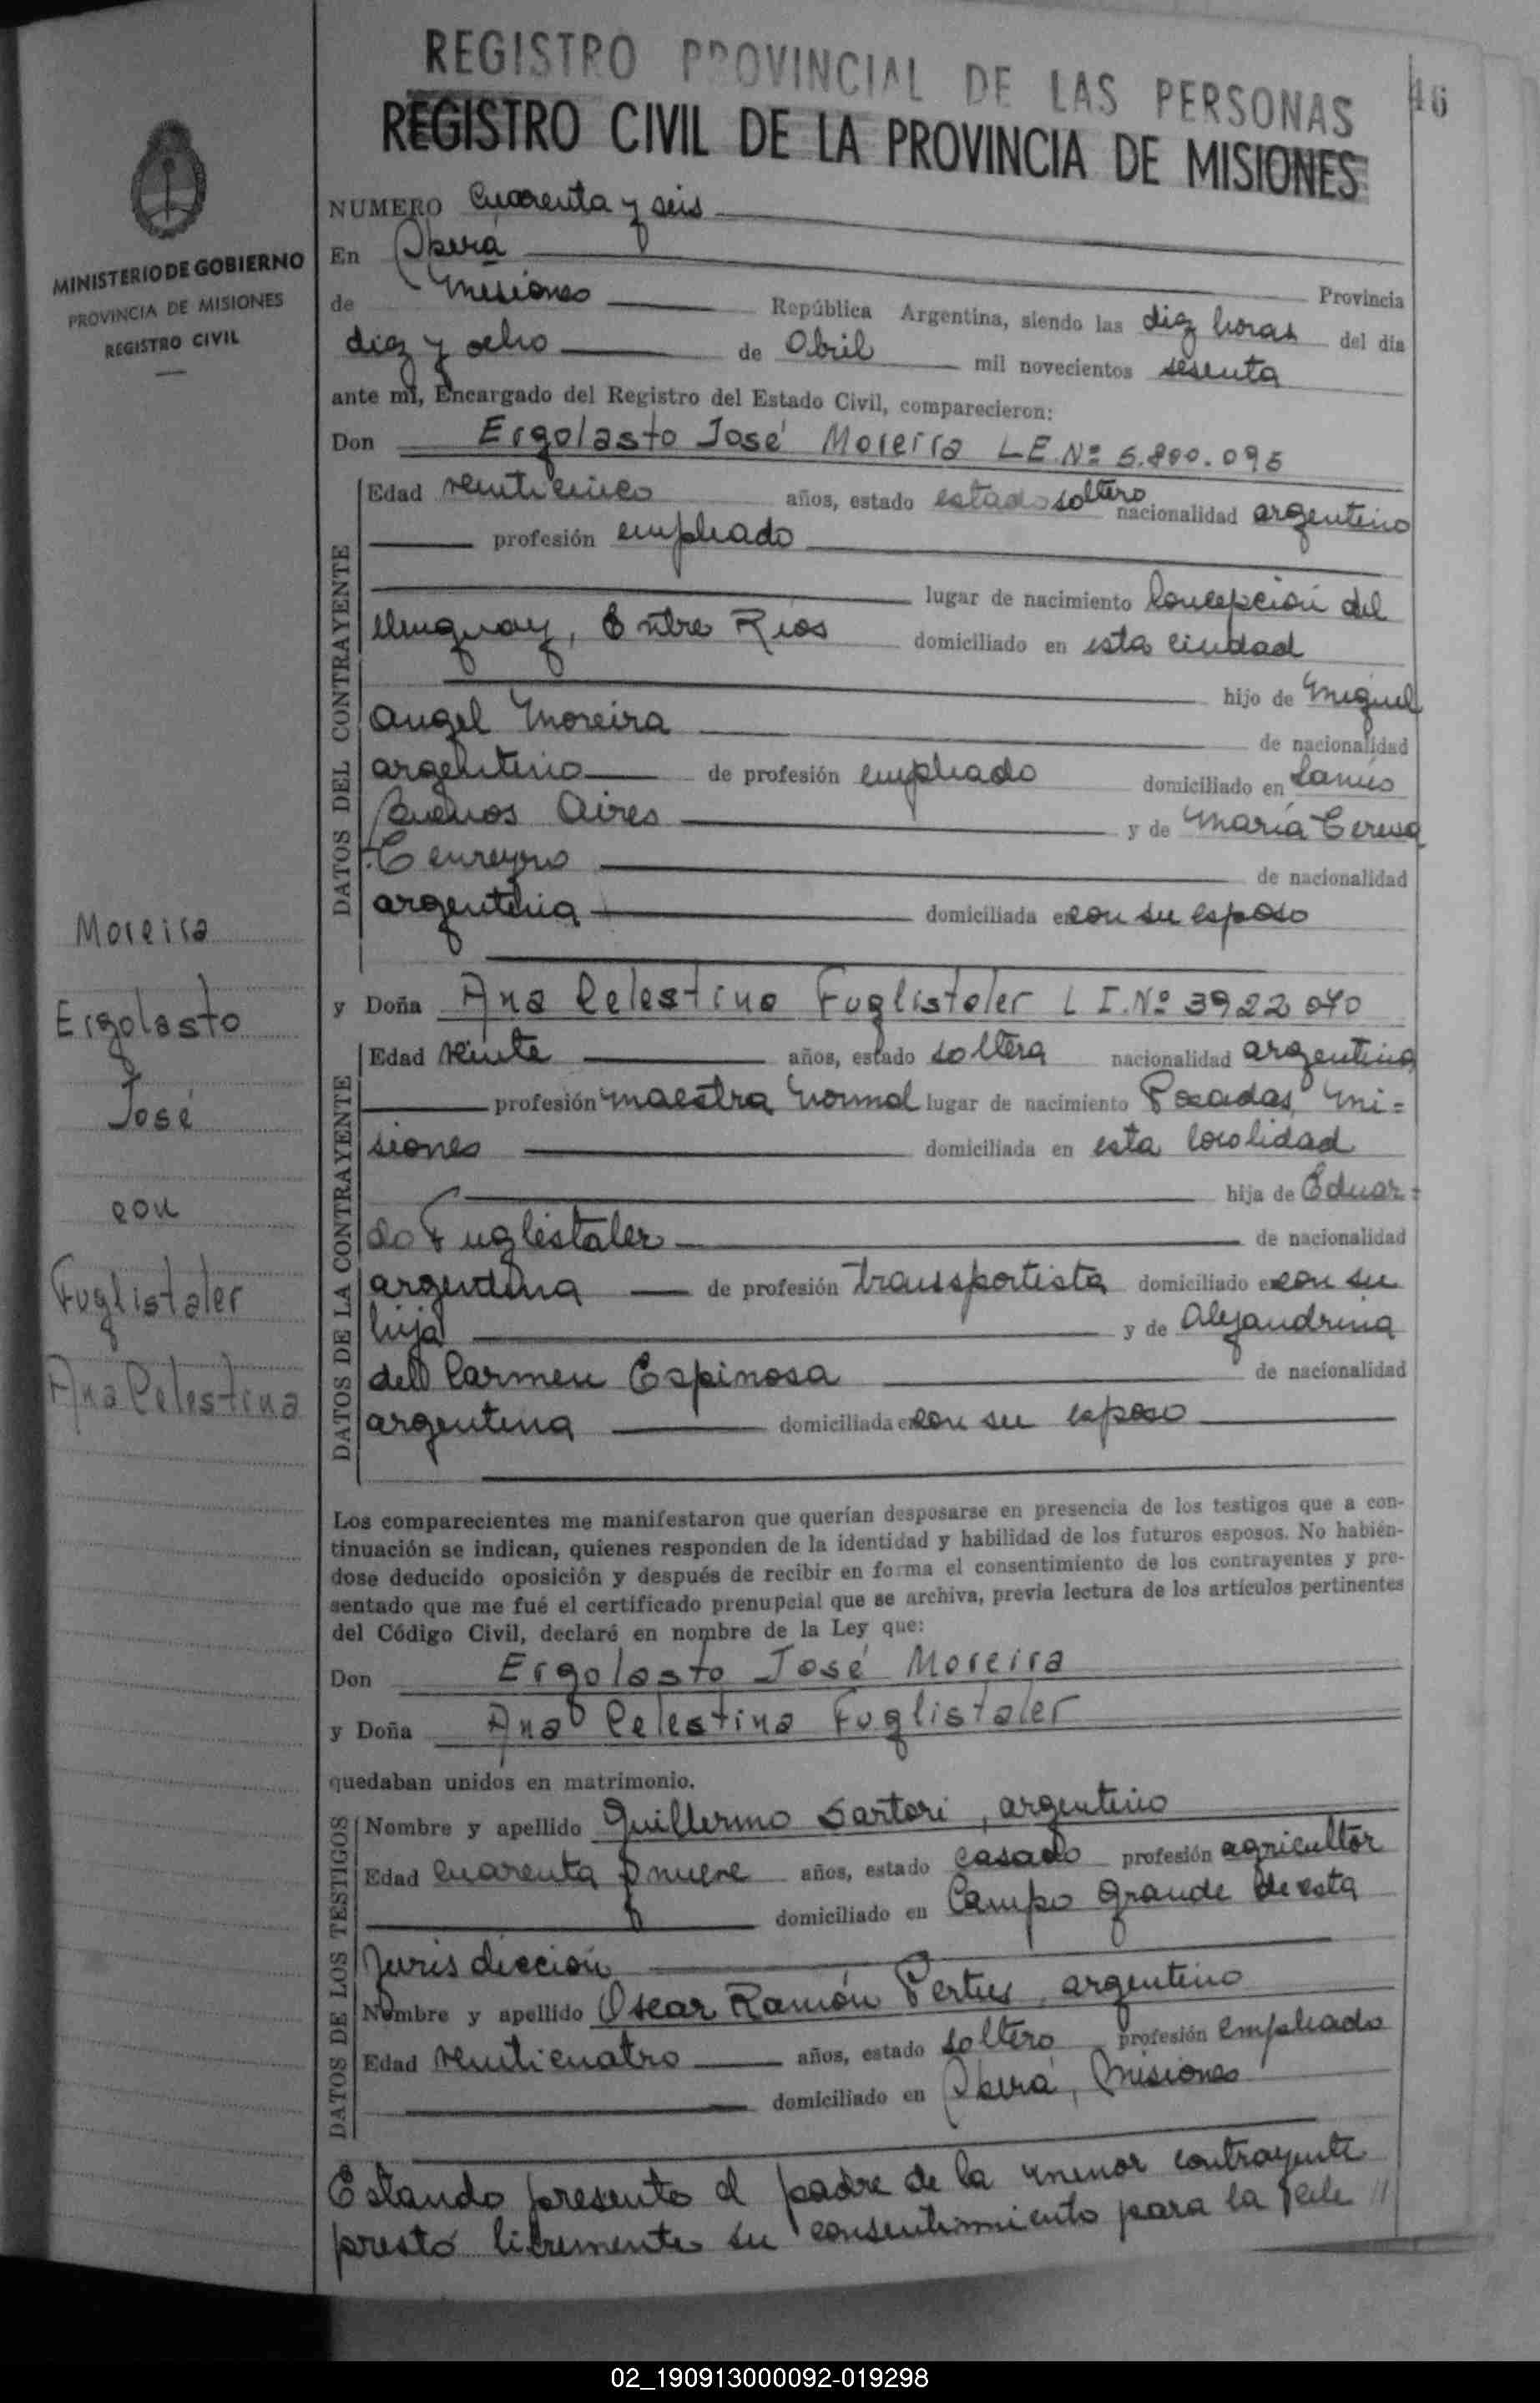 REGISTRO PROVINCIAL DE LAS PERSONAS
46
REGISTRO CIVIL DE LA PROVINCIA DE MISIONES
MINISTERIO DE GOBIERNO
PROVINCIA DE MISIONES
REGISTRO CIVIL
NUMERO Cuarenta y seis
En Oberá Provincia
de Misiones República Argentina, siendo las diez horas del día
diez y ocho de Abril mil novecientos sesenta
ante mí, Encargado del Registro del Estado Civil, comparecieron:
Don Ergolasto José Moreira L.E.Nº 5.800.095
DATOS DEL CONTRAYENTE
Edad veinticinco años, estado estado soltero nacionalidad argentino
profesión empleado
lugar de nacimiento Concepción del
Uruguay, Entre Ríos domiciliado en esta ciudad
hijo de Miguel
Angel Moreira de nacionalidad
argentino de profesión empleado domiciliado en Lanús
Buenos Aires y de María Teresa
Tenreyro de nacionalidad
argentina domiciliada en con su esposo
y Doña Ana Celestina Fuglistaler L I.Nº 3922070
DATOS DE LA CONTRAYENTE
Edad veinte años, estado soltera nacionalidad argentina
profesión maestra normal lugar de nacimiento Posadas, Mi=
siones domiciliada en esta localidad
hija de Eduar=
do Fuglistaler de nacionalidad
argentina de profesión transportista domiciliado en con su
hija y de Alejandrina
del Carmen Espinosa de nacionalidad
argentina domiciliada en con su esposo
Moreira
Ergolasto
José
con
Fuglistaler
Ana Celestina
Los comparecientes me manifestaron que querían desposarse en presencia de los testigos que a con-
tinuación se indican, quienes responden de la identidad y habilidad de los futuros esposos. No habién-
dose deducido oposición y después de recibir en forma el consentimiento de los contrayentes y pre-
sentado que me fué el certificado prenupcial que se archiva, previa lectura de los artículos pertinentes
del Código Civil, declaré en nombre de la Ley que:
Don Ergolasto José Moreira
y Doña Ana Celestina Fuglistaler
quedaban unidos en matrimonio.
DATOS DE LOS TESTIGOS
Nombre y apellido Guillermo Sartori, argentino
Edad cuarenta y nueve años, estado casado profesión agricultor
domiciliado en Campo Grande de esta
Jurisdicción
Nombre y apellido Oscar Ramón Pertus, argentino
Edad veinticuatro años, estado soltero profesión empleado
domiciliado en Oberá, Misiones
Estando presente el padre de la menor contrayente
prestó libremente su consentimiento para la cele //
02_190913000092-019298